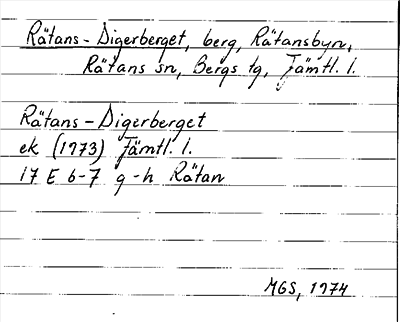 Rätans-Digerberget, berg, Rätansbyn,
Rätans sn, Bergs tg, Jämtl. l.
Rätans-Digerberget
ek (1973) Jämtl. l.
17 E 6-7 g-h Rätan
MGS, 1974